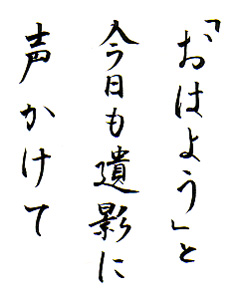 「おはよう」と
今日も遺影に
声かけて